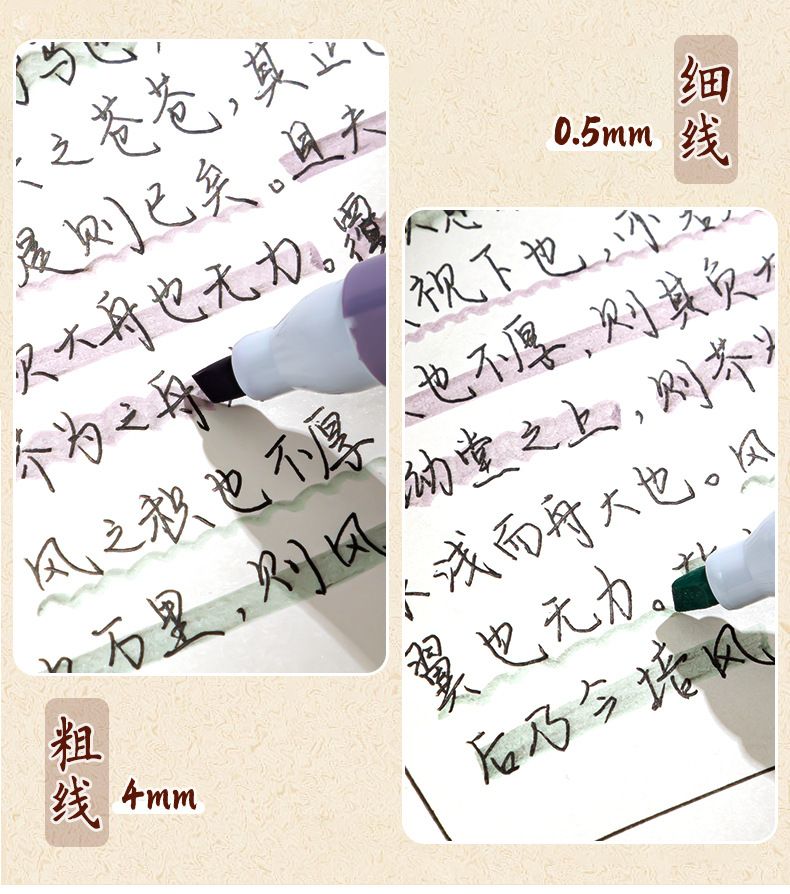 鸟也
之苍苍，其正
是则已矣。且夫
负大舟也无力。覆
芥为之舟
风之积也不厚
万里，则风
粗线
4mm
细线
0.5mm
视下也，亦若
也不厚，则其负大
坳堂之上，则芥为
水浅而舟大也。风
翼也无力。故
后乃今培风